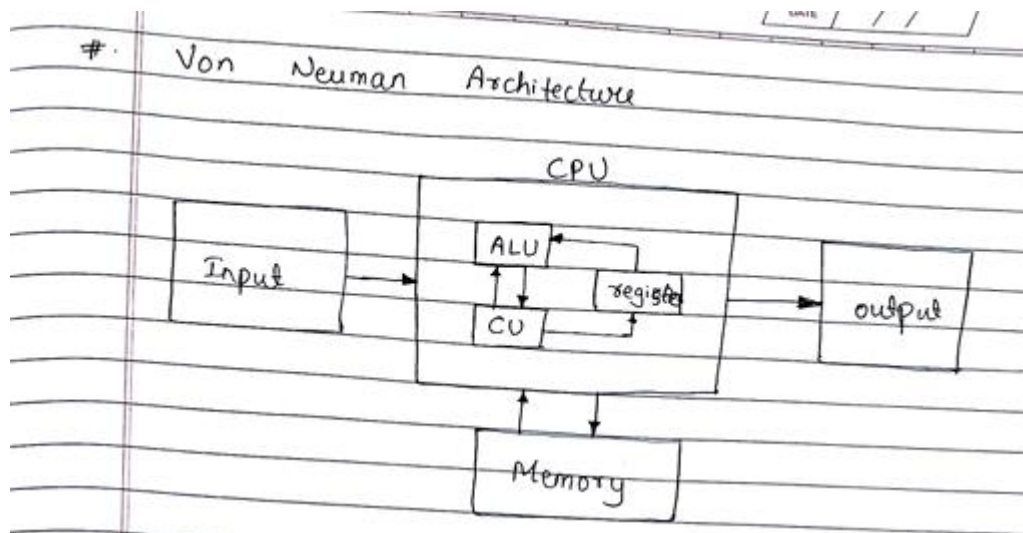 DATE / /
#. Von Neuman Architecture
CPU
ALU
Input
register
output
CU
Memory